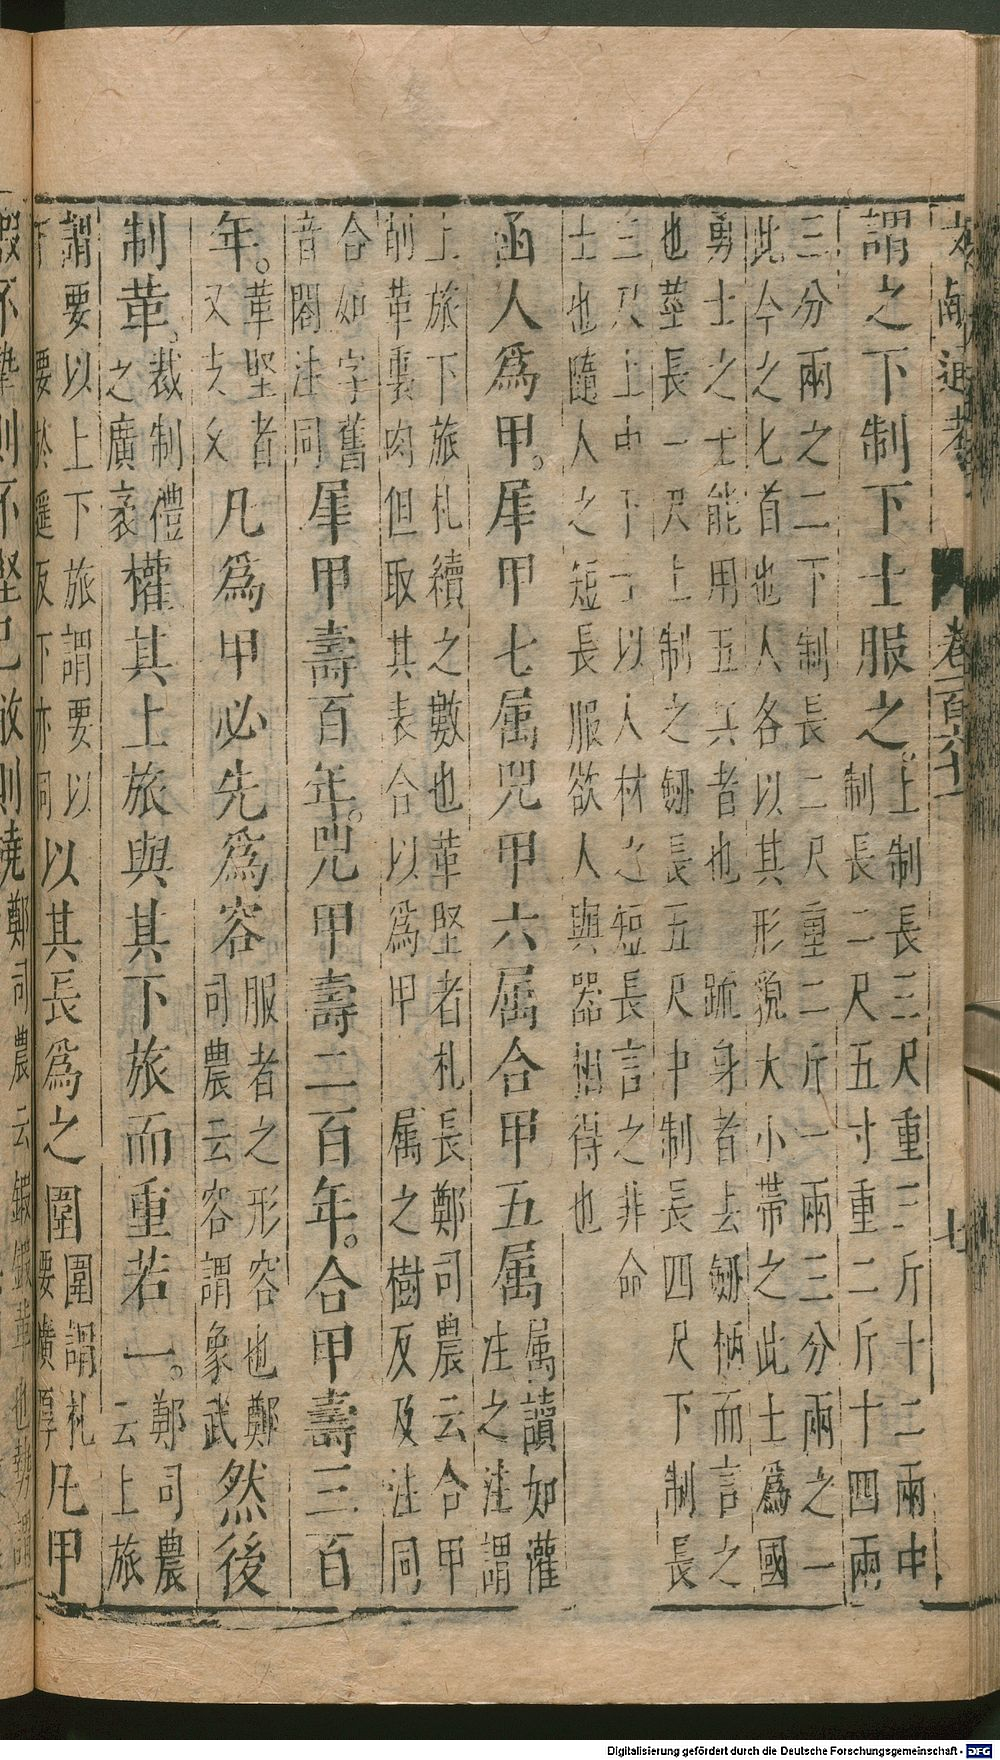 文獻通考 卷一百六十一 七
謂之下制下士服之。上制長三尺重三斤十二兩中
制長二尺五寸重二斤十四兩
三分兩之二下制長二尺重二斤一兩三分兩之一
此今之匕首也人各以其形貌大小帶之此士爲國
勇士之士能用五兵者也 䟽身者去劒柄而言之
也莖長一尺上制之劒長五尺中制長四尺下制長
三尺上中下士以人材之短長言之非命
士也隨人之短長服欲人與器相得也
函人爲甲。犀甲七属兕甲六属合甲五属属讀如灌
注之注謂
上旅下旅札續之數也革堅者札長鄭司農云合甲
削革裏肉但取其表合以爲甲 属之樹反及注同
合如字舊
音閤注同犀甲壽百年。兕甲壽二百年。合甲壽三百
年。革堅者
又支久凡爲甲必先爲容服者之形容也鄭
司農云容謂象武然後
制革。裁制禮
之廣袤權其上旅與其下旅而重若一。鄭司農
云上旅
謂要以上下旅謂要以
下 要於遥反下亦同以其長爲之圍圍謂札
要廣厚凡甲
鍛不摯則不堅已敝則橈鄭司農云鍛鍛革也摯謂
Digitalisierung gefördert durch die Deutsche Forschungsgemeinschaft - DFG